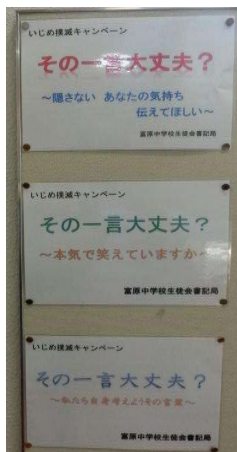 いじめ撲滅キャンペーン
その一言大丈夫？
～隠さない あなたの気持ち
伝えてほしい～
富原中学校生徒会書記局
いじめ撲滅キャンペーン
その一言大丈夫？
～本気で笑えていますか～
富原中学校生徒会書記局
いじめ撲滅キャンペーン
その一言大丈夫？
～私たち自身考えようその言葉～
富原中学校生徒会書記局